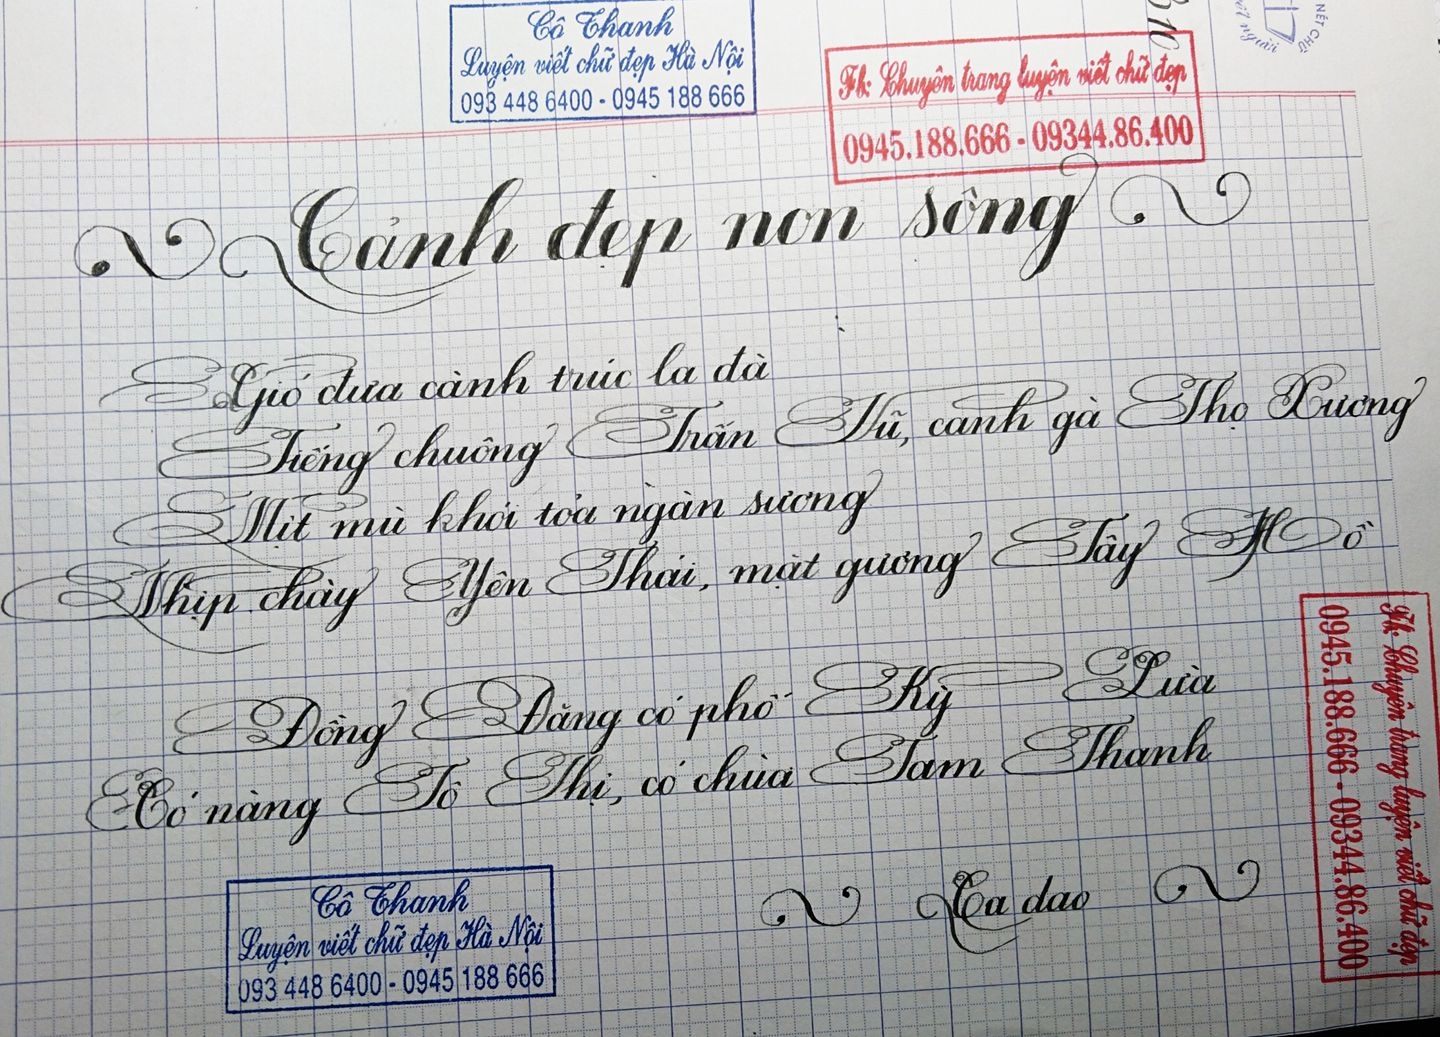 Cô Thanh
Luyện viết chữ đẹp Hà Nội
093 448 6400 - 0945 188 666
Fb: Chuyên trang luyện viết chữ đẹp
0945.188.666 - 09344.86.400
NÉT CHỮ
nết người
Cảnh đẹp non sông
Gió đưa cành trúc la đà
Tiếng chuông Trấn Vũ, canh gà Thọ Xương
Mịt mù khói tỏa ngàn sương
Nhịp chày Yên Thái, mặt gương Tây Hồ
Đồng Đăng có phố Kỳ Lừa
Có nàng Tô Thị, có chùa Tam Thanh
Ca dao
Cô Thanh
Luyện viết chữ đẹp Hà Nội
093 448 6400 - 0945 188 666
Fb: Chuyên trang luyện viết chữ đẹp
0945.188.666 - 09344.86.400